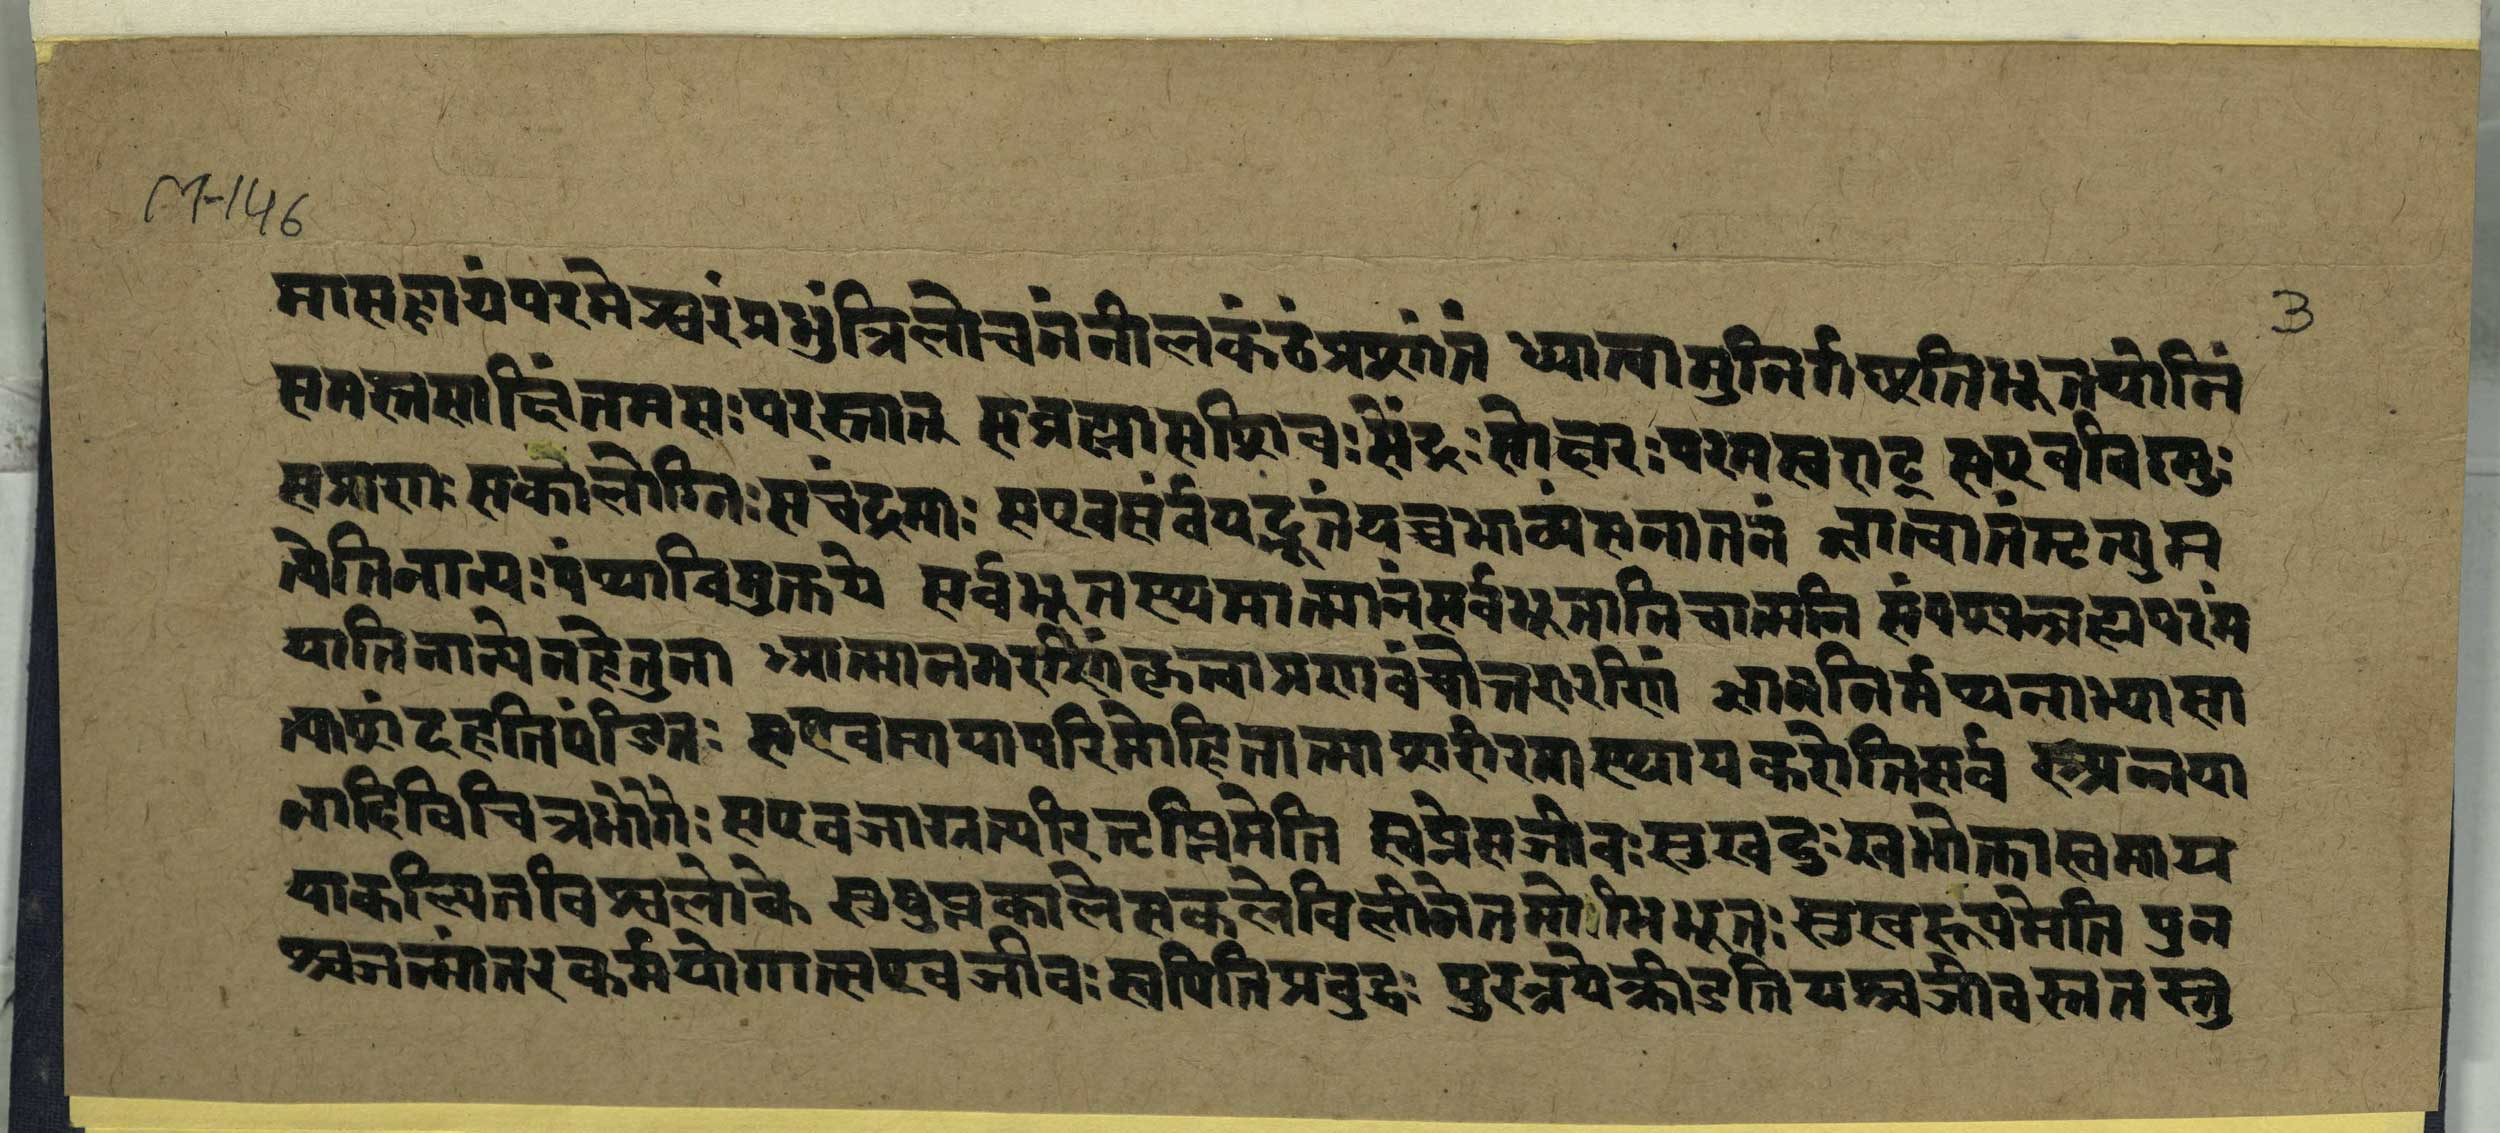 M-146
3
मासहायंपरमेश्वरंप्रभुंत्रिलोचनंनीलकंठंप्रशांतं ध्यात्वामुनिर्गच्छतिभूतयोनिं
समस्तसाक्षिंतमसःपरस्तात् सब्रह्मासशिवःसेंद्रःसोक्षरःपरमस्वराट् सएवविष्णुः
सप्राणः सकालोग्निःसचंद्रमाः सएवसर्वंयद्भूतंयच्चभाव्यंसनातनं ज्ञात्वातंमृत्युम
त्येतिनान्यःपंथाविमुक्तये सर्वभूतस्थमात्मानंसर्वभूतानिचात्मनि संपश्यन्ब्रह्मपरमं
यातिनान्येनहेतुना आत्मानमरणिंकृत्वाप्रणवंचोत्तरारणिं ज्ञाननिर्मथनाभ्यासा
त्पाशंदहतिपंडितः सएवमायापरिमोहितात्माशरीरमास्थायकरोतिसर्वं स्त्र्यन्नपा
नादिविचित्रभोगैः सएवजाग्रत्परितृप्तिमेति स्वप्नेसजीवःसुखदुःखभोक्तास्वमाय
याकल्पितविश्वलोके सुषुप्तकालेसकलेविलीनेतमोभिभूतःसुखरूपमेति पुन
श्चजन्मांतरकर्मयोगात्सएवजीवःस्वपितिप्रबुद्धः पुरत्रयेक्रीडतियश्चजीवस्ततस्तु